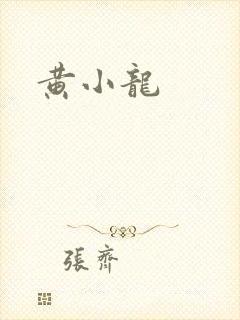 黄小龍
張齊